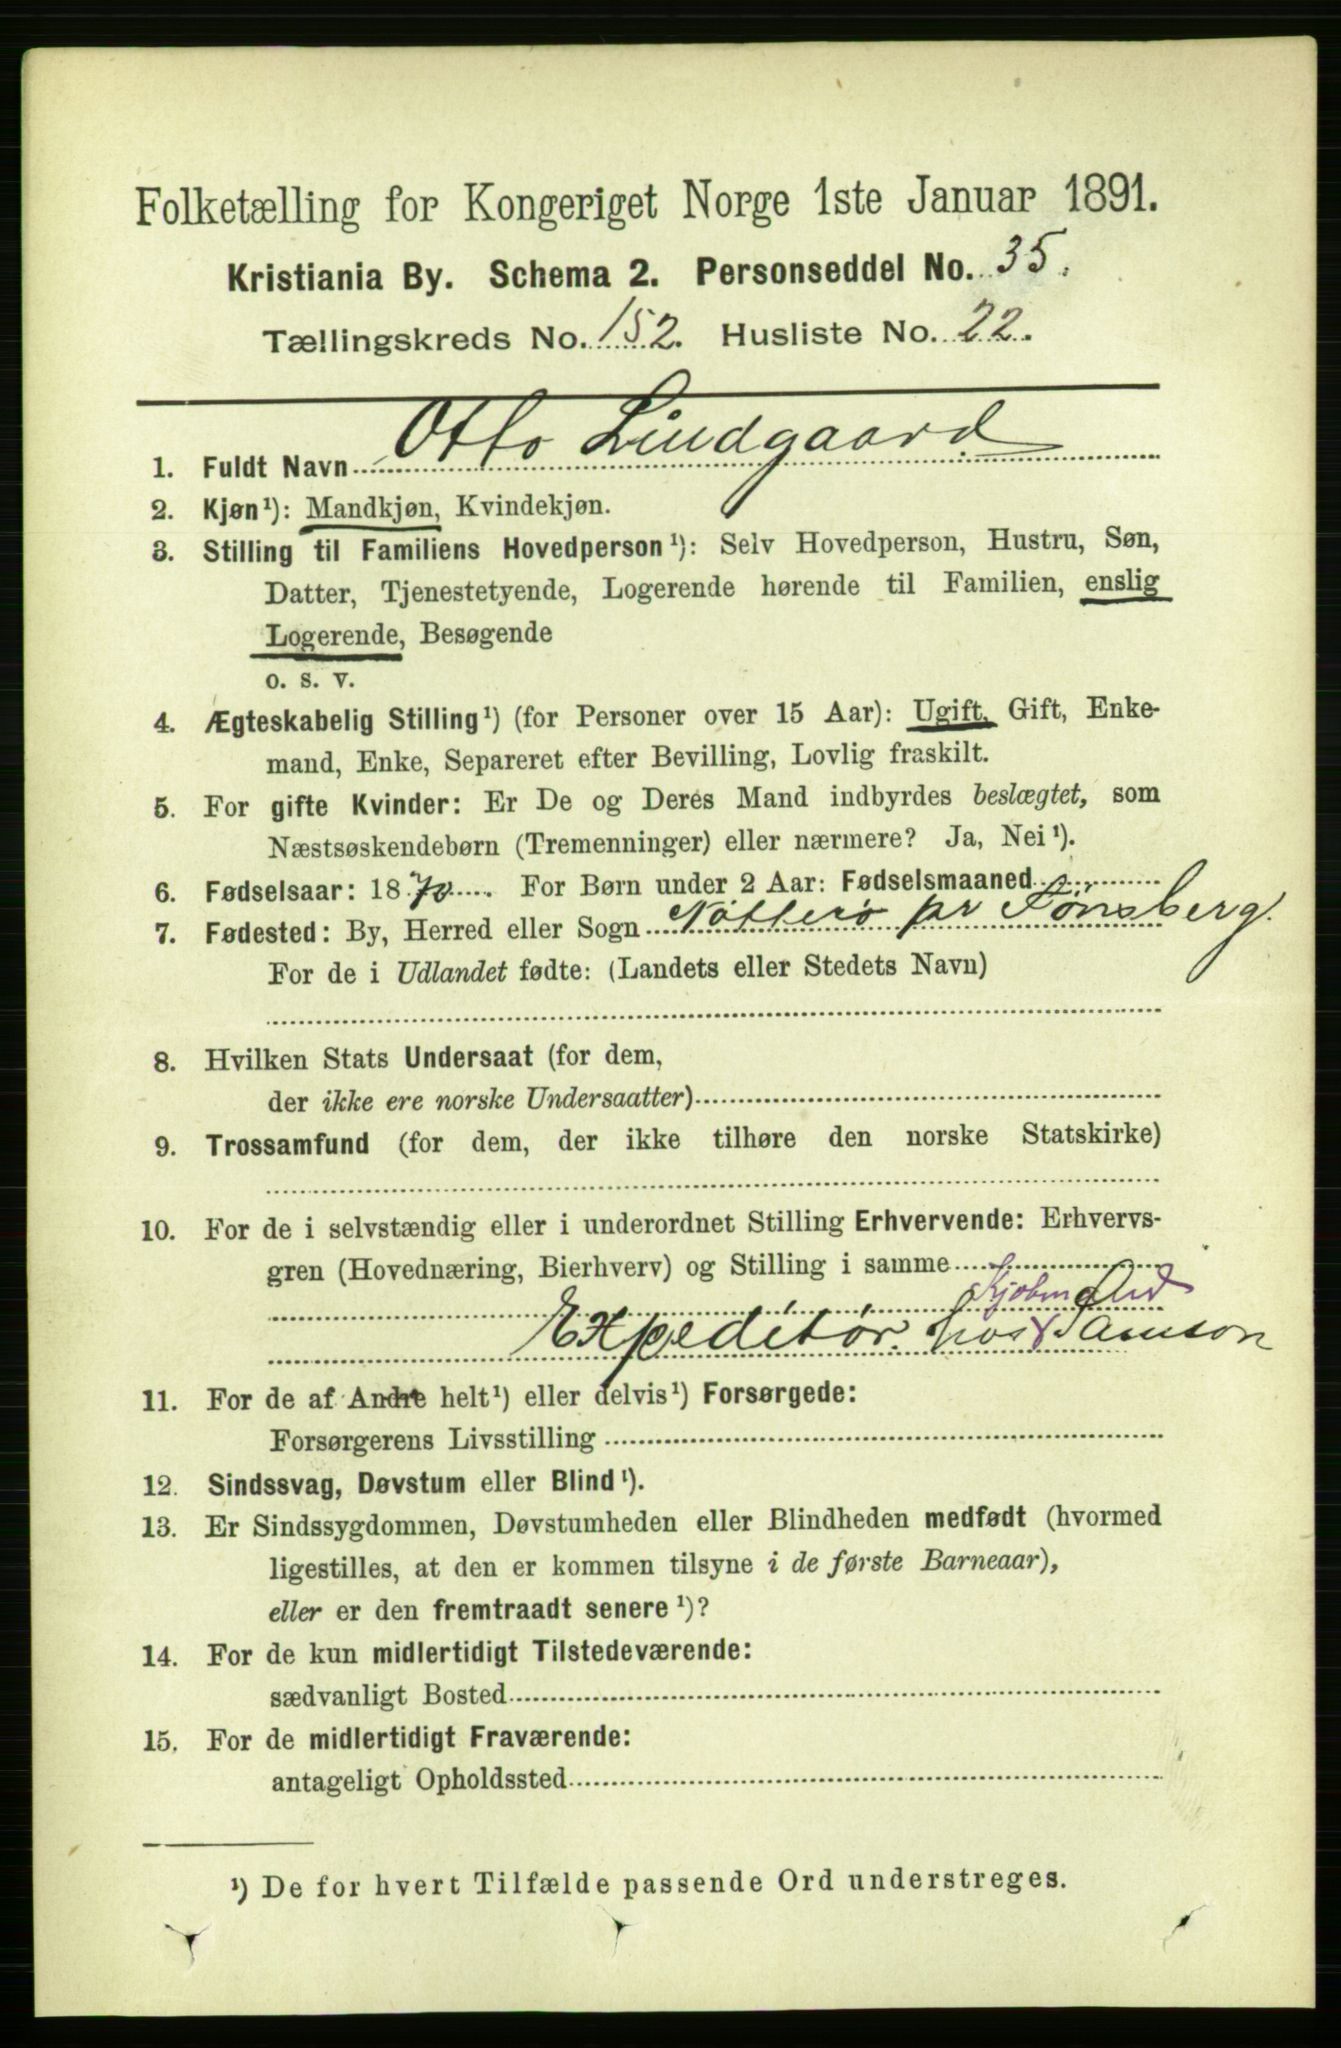 Folketælling for Kongeriget Norge 1ste Januar 1891.
Kristiania By. Schema 2. Personseddel No. 35.
Tællingskreds No. 152. Husliste No. 22.
1. Fuldt Navn Otto Lindgaard
2. Kjøn¹): Mandkjøn, Kvindekjøn.
3. Stilling til Familiens Hovedperson¹): Selv Hovedperson, Hustru, Søn,
Datter, Tjenestetyende, Logerende hørende til Familien, enslig
Logerende, Besøgende
o. s. v.
4. Ægteskabelig Stilling¹) (for Personer over 15 Aar): Ugift, Gift, Enke-
mand, Enke, Separeret efter Bevilling, Lovlig fraskilt.
5. For gifte Kvinder: Er De og Deres Mand indbyrdes beslægtet, som
Næstsøskendebørn (Tremenninger) eller nærmere? Ja, Nei¹).
6. Fødselsaar: 1870 For Børn under 2 Aar: Fødselsmaaned
7. Fødested: By, Herred eller Sogn Nötterö pr Tönsberg.
For de i Udlandet fødte: (Landets eller Stedets Navn)
8. Hvilken Stats Undersaat (for dem,
der ikke ere norske Undersaatter)
9. Trossamfund (for dem, der ikke tilhøre den norske Statskirke)
10. For de i selvstændig eller i underordnet Stilling Erhvervende: Erhvervs-
gren (Hovednæring, Bierhverv) og Stilling i samme
Kjøbm
Expeditör hos Samson
11. For de af Andre helt¹) eller delvis¹) Forsørgede:
Forsørgerens Livsstilling
12. Sindssvag, Døvstum eller Blind¹).
13. Er Sindssygdommen, Døvstumheden eller Blindheden medfødt (hvormed
ligestilles, at den er kommen tilsyne i de første Barneaar),
eller er den fremtraadt senere¹)?
14. For de kun midlertidigt Tilstedeværende:
sædvanligt Bosted
15. For de midlertidigt Fraværende:
antageligt Opholdssted
¹) De for hvert Tilfælde passende Ord understreges.